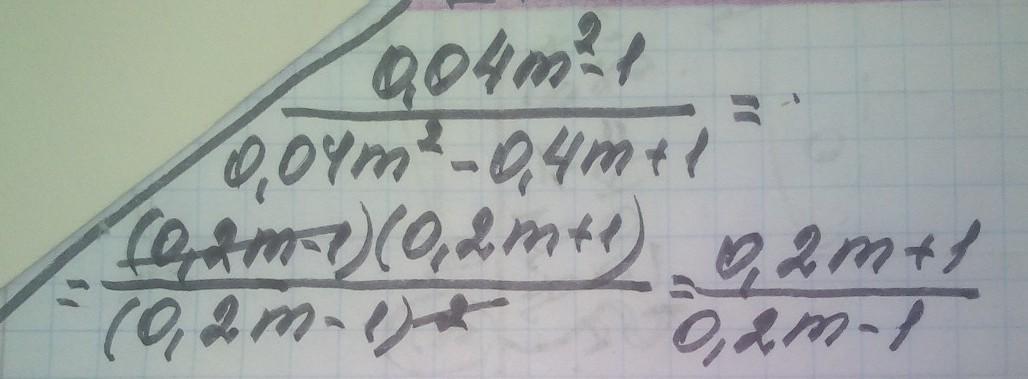 (0,04m²-1)/(0,04m²-0,4m+1) =
= ((0,2m-1)(0,2m+1))/((0,2m-1)²) = (0,2m+1)/(0,2m-1)